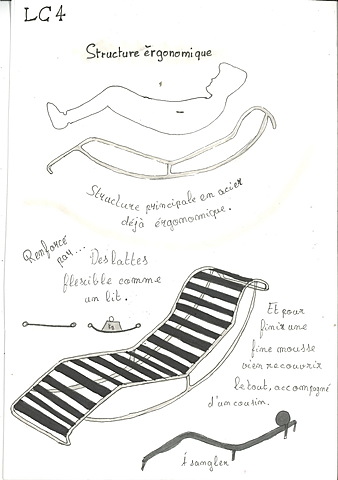 LC4
Structure ergonomique
Structure principale en acier
déjà érgonomique.
Renforcé
par...
Des lattes
flexible comme
un lit.
Et pour
finir une
fine mousse
vien recouvrir
le tout, accompagné
d'un cousin.
À sangler